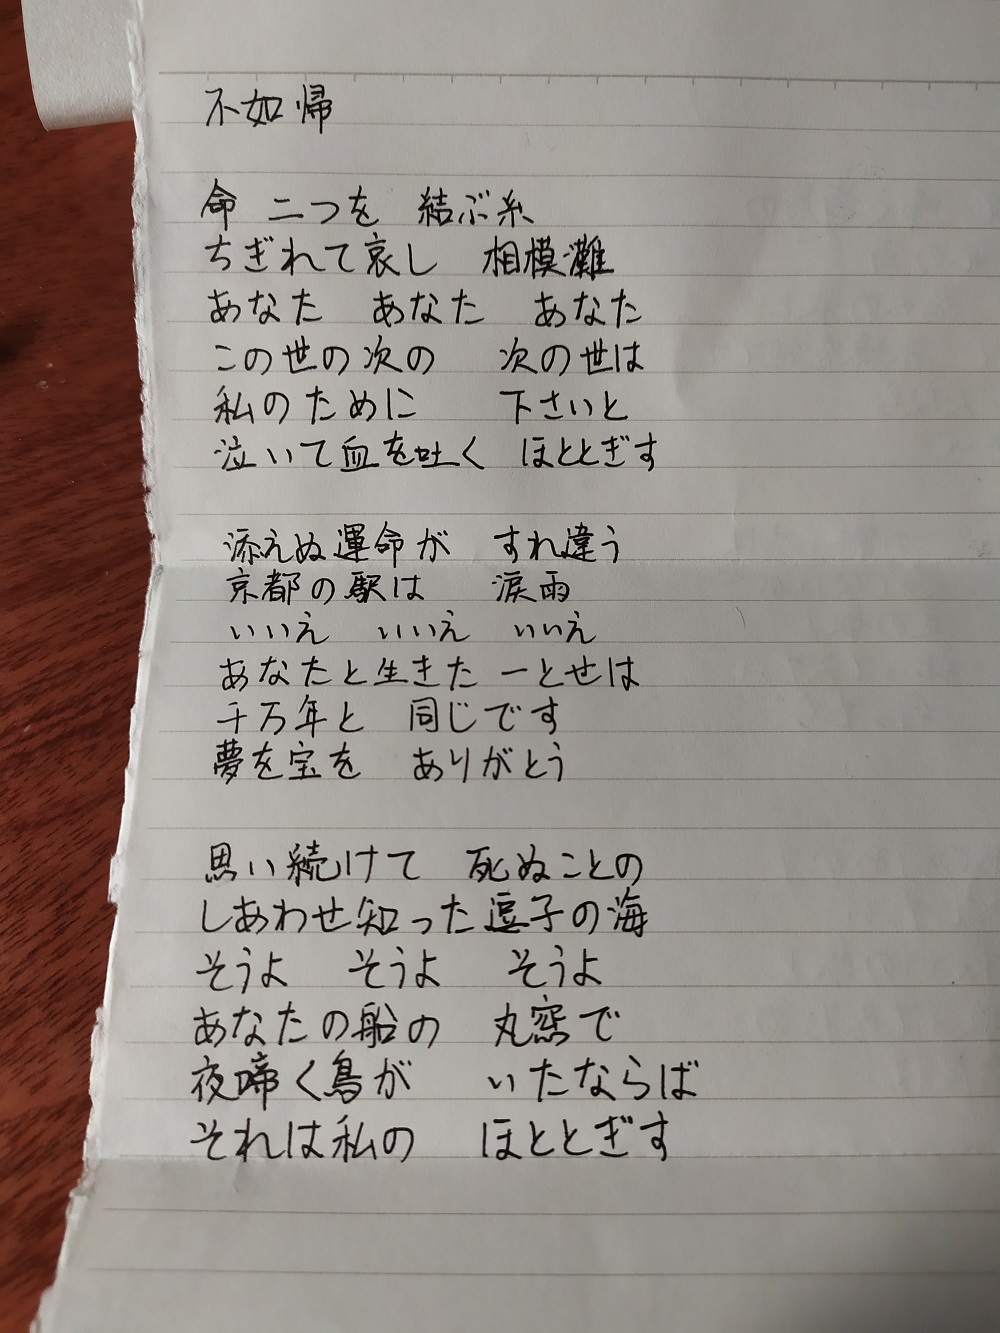 不如帰
命 二つを 結ぶ糸
ちぎれて哀し 相模灘
あなた あなた あなた
この世の次の 次の世は
私のために 下さいと
泣いて血を吐く ほととぎす
添えぬ運命が すれ違う
京都の駅は 涙雨
いいえ いいえ いいえ
あなたと生きた 一とせは
千万年と 同じです
夢を宝を ありがとう
思い続けて 死ぬことの
しあわせ知った逗子の海
そうよ そうよ そうよ
あなたの船の 丸窓で
夜啼く鳥が いたならば
それは私の ほととぎす